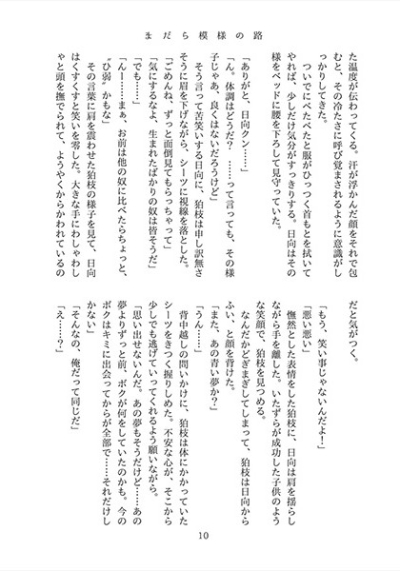 まだら模様の路
た温度が伝わってくる。汗が浮かんだ顔をそれで包
むと、その冷たさに呼び覚まされるように意識がし
っかりしてきた。
　ついでにべたべたと服がひっつく首もとを拭いて
やれば、少しだけ気分がすっきりする。日向はその
様をベッドに腰を下ろして見守っていた。
「ありがと、日向クン……」
「ん。体調はどうだ？　……って言っても、その様
子じゃあ、良くはないだろうけど」
　そう言って苦笑いする日向に、狛枝は申し訳無さ
そうに眉を下げながら、シーツに視線を落とした。
「ごめんね、ずっと面倒見てもらっちゃって」
「気にするなよ、生まれたばかりの奴は皆そうだ」
「でも……」
「んー……まぁ、お前は他の奴に比べたらちょっと、
〝ひ弱〟かもな」
　その言葉に肩を震わせた狛枝の様子を見て、日向
はくすくすと笑いを零した。大きな手にわしゃわし
ゃと頭を撫でられて、ようやくからかわれているの
だと気がつく。
「もう、笑い事じゃないんだよ！」
「悪い悪い」
　憮然とした表情をした狛枝に、日向は肩を揺らし
ながら手を離した。いたずらが成功した子供のよう
な笑顔で、狛枝を見つめる。
　なんだかどぎまぎしてしまって、狛枝は日向から
ふい、と顔を背けた。
「また、あの青い夢か？」
「うん……」
　背中越しの問いかけに、狛枝は体にかかっていた
シーツをきつく握りしめた。不安な心が、そこから
少しでも逃げていってくれるよう願いながら。
「思い出せないんだ。あの夢もそうだけど……あの
夢よりずっと前、ボクが何をしていたのかも。今の
ボクはキミに出会ってからが全部で……それだけし
かない」
「そんなの、俺だって同じだ」
「え……？」
10